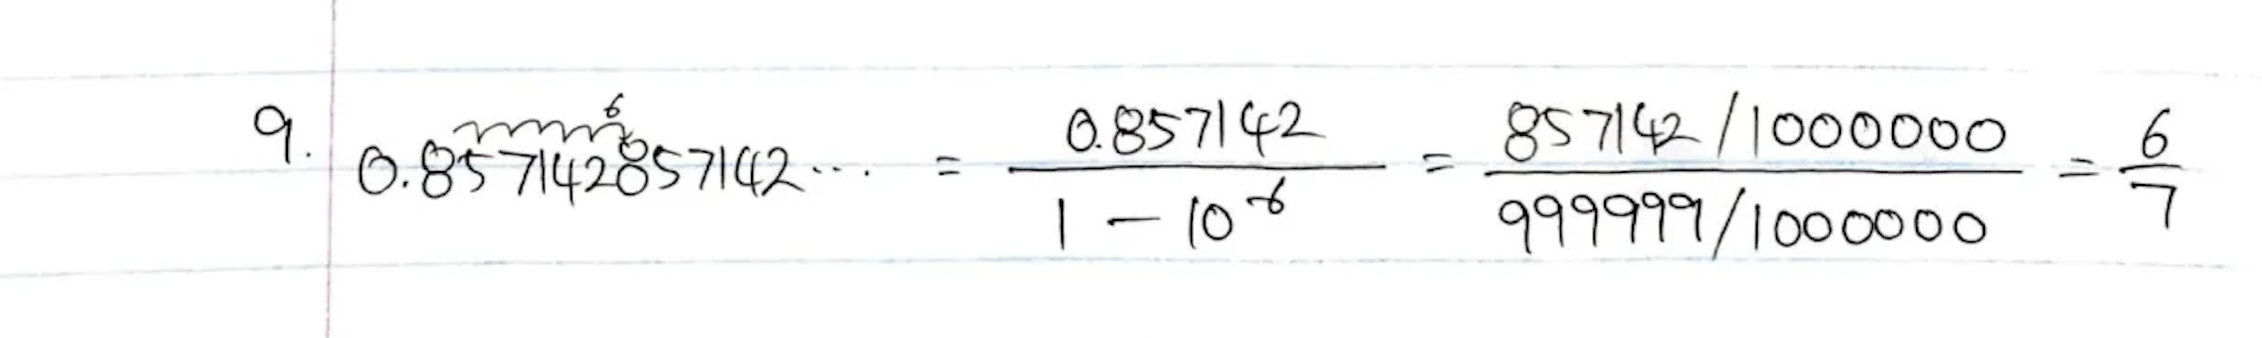 9. 0.857142857142... = 0.857142 / (1 - 10^-6) = (857142/1000000) / (999999/1000000) = 6/7
6